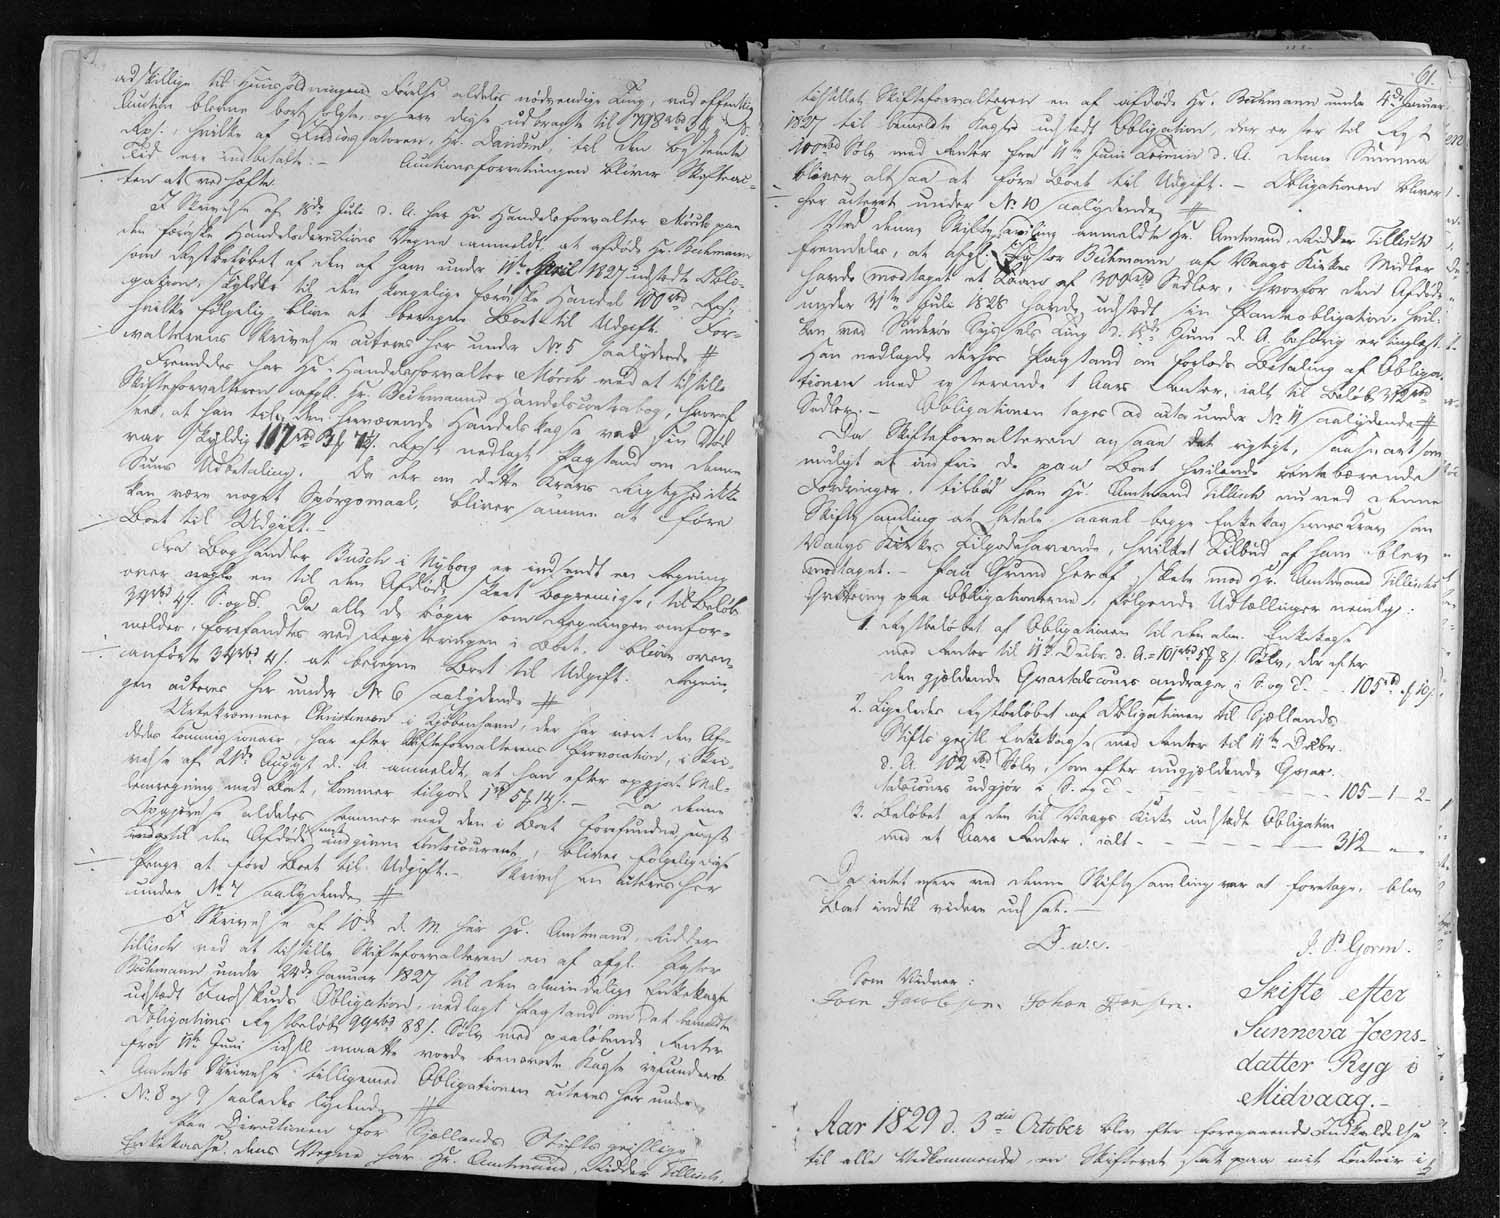 adskillige til Huusholdningens Førelse aldeles nødvendige Ting, ved offentlig
Auction blevne bortsolgte, og ere disse udbragte til 798 rbd 3 ß
Rps:, hvilke af Auctionsforvalteren, Hr. Lunddin, til den bestemte
Tid ere indbetalte: — Auctionsforretningen bliver Skifteac-
ten at vedhæfte.
I Skrivelse af 18de Juli d. A. har Hr. Handelsforvalter Mørch paa
den færøiske Handelsdirections Vegne anmeldt, at afdøde Hr. Bechmann
som Restbeløbet af den af ham under 11te April 1827 udstedte Obli-
gation, skyldte til den kongelige færøiske Handel 100 rbd
hvilke følgelig blive at beregne Boet til Udgift. For-
valterens Skrivelse acteres her under No. 5 saalydende #
Fremdeles har Hr. Handelsforvalter Mørch ved at tilstille
Skifteforvalteren afgl. Hr. Bechmanns Handelscontrabog, hvoraf
sees, at han til den herværende Handelskasse ved sin Død
var skyldig 117 rbd 3 ß Rpst. nedlagt Paastand om denne
Sums Udbetaling. Da der om dette Kravs Rigtighed ikke
kan være noget Spørgsmaal, bliver samme at føre
Boet til Udgift. —
Fra Boghandler Busch i Nyborg er indsendt en Regning
over en til den Afdøde skeet Bogremisse, til Beløb
34 rbd 4 ß. S. og T. Da alle de Bøger som Regningen omfor-
melder, forefandtes ved Registeringen i Boet, blive oven-
anførte 34 rbd 4 ß. at beregne Boet til Udgift. Regnin-
gen acteres her under No 6 saalydende #
Urtekræmmer Christensen i Kjøbenhavn, der har været den Af-
dødes Commissionair, har efter Skifteforvalterens Provocation, i Skri-
velse af 21de August d. A. anmeldt, at han efter opgjort Mel-
lemregning med Boet, kommer tilgode 1 rbd 5 ß 14 ß. — Da denne
Opgjørelse aldeles stemmer med den i Boet forefundne, sidst
til den Afdøde indgivne Contocourant, blive følgelig disse
Penge at føre Boet til Udgift. — Skrivelsen acteres her
under No. 7 saalydende #
I Skrivelse af 10de d. M. har Hr. Amtmand, Ridder
Tillisch ved at tilstille Skifteforvalteren en af afgl. Pastor
Bechmann under 24de Januar 1827 til den almindelige Enkekasse
udstædt Indskuds Obligation, nedlagt Paastand om, at bemeldte
Obligations Restbeløb 99 rbd 88 ß. Sølv med paaløbende Renter
fra 11te Juni sidstl. maatte vorde benævnte Kasse refunderet.
Amtets Skrivelse tilligemed Obligationen acteres her under
No. 8 og 9 saaledes lydende #
Paa Directionen for Sjællands Stifts geistlige
Enkekasse, dens Vegne har Hr. Amtmand, Ridder Tillisch,
61.
tilstillet Skifteforvalteren en af afdøde Hr. Bechmann under 4de Januar
1827 til bemeldte Kasse udstedt Obligation, der er for til Rest
100 rbd Sølv med Renter fra 11te Juni Termin d. A. Denne Summa
bliver altsaa at føre Boet til Udgift. — Obligationen bliver
her acteret under No 10 saalydende #
Ved denne Skiftesamling anmeldte Hr. Amtmand, Ridder Tillisch
fremdeles, at afgl. Pastor Bechmann af Vaags Kirkes Midler
havde modtaget et Laan af 300 rbd Sedler, hvorfor den Afdøde
under 4te Juli 1828 havde udstedt sin Panteobligation, hvil-
ken ved Suderøe Syssels Ting d. 15de Juni d. A. behørig er tinglæst.
Han nedlagde derhos Paastand om forlods Betaling af Obliga-
tionen med resterende 1 Aars Renter, ialt til Beløb 312 rbd
Sedler. — Obligationen tages ad acta under No 11 saalydende #
Da Skifteforvalteren ansaae det rigtigt, saasnart som
muligt at indfrie de paa Boet hvilende rentebærende
Fordringer, tilbød han Hr. Amtmand Tillisch nu ved denne
Skiftesamling at betale saavel begge Enkekassernes Krav som
Vaags Kirkes Tilgodehavende, hvilket Tilbud af ham blev
modtaget. — Paa Grund heraf skete mod Hr. Amtmand Tillisches
Qvittering paa Obligationerne, følgende Udtællinger nemlig:
1. Restbeløbet af Obligationen til den alm. Enkekasse
med Renter til 11te Decbr. d. A. = 101 rbd 5 ß 8 ß Sølv, der efter
den gjældende Qvartalscours andrager i S. og T. - - 105 rd " 10 ß.
2. Ligeledes Restbeløbet af Obligationen til Sjællands
Stifts geistl. Enkekasse med Renter til 11te Decbr.
d. A. 102 rbd Sølv, som efter nugjældende Qvar-
talscours udgjør i S. og T. - - - - - - 105 - 1 - 2 -
3. Beløbet af den til Vaags Kirke udstedte Obligation
med et Aars Renter, ialt - - - - - - 312 - " - "
Da intet mere ved denne Skiftesamling var at foretage, blev
Boet indtil videre udsat. —
D. u. s.
J. P. Gorm.
Som Vidner:
Joen Jacobsen. Johan Joensen.
Skifte efter
Sunneva Joens-
datter Ryg i
Midvaag. —
Aar 1829 d. 3die October blev efter foregaaende Indkaldelse
til alle Vedkommende en Skifteret sat paa mit Contoir i